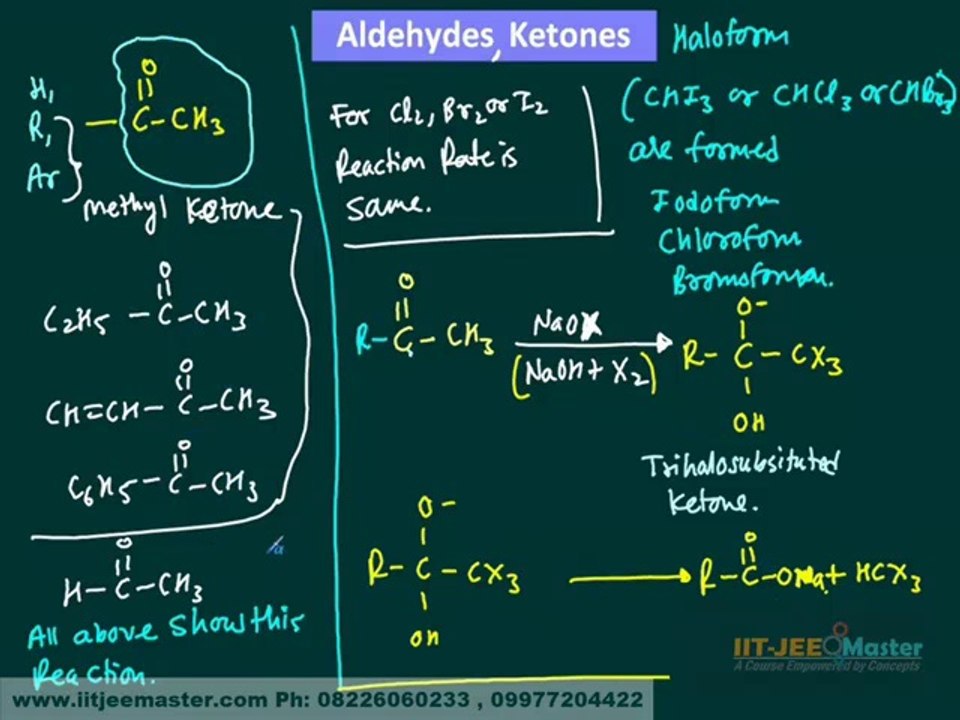 Aldehydes, Ketones
H,
R,
Ar
O
||
— C – CH3
Methyl Ketone
O
||
C2H5 – C – CH3
O
||
CH=CH – C – CH3
O
||
C6H5 – C – CH3
O
||
H – C – CH3
All above Show this
Reaction.
For Cl2, Br2 or I2
Reaction Rate is
same.
Haloform
(CHI3 or CHCl3 or CHBr3)
are formed
Iodoform
Chloroform
O
||
R – C – CH3
NaOX
(NaOH + X2)
O–
|
R – C – CX3
|
OH
Trihalosubsituted
Ketone.
O–
|
R – C – CX3
|
OH
O
||
R – C – ONa + HCX3
IIT-JEE Master
A Course Empowered by Concepts
www.iitjeemaster.com Ph: 08226060233 , 09977204422